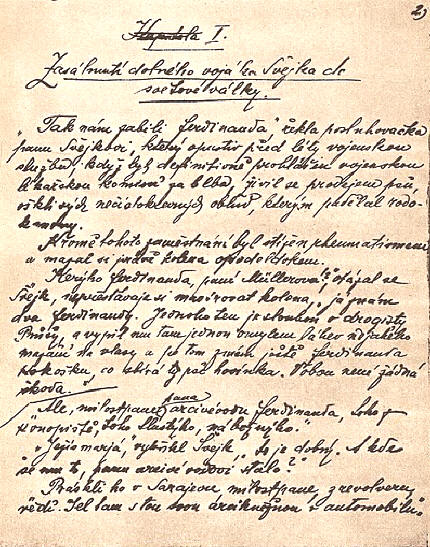 2)
Kapitola I.
Zasáhnutí dobrého vojáka Švejka do
světové války.
„Tak nám zabili Ferdinanda", řekla posluhovačka
panu Švejkovi, který opustiv před léty vojenskou
službu, když byl definitivně prohlášen vojenskou
lékařskou komisí za blba, živil se prodejem psů,
ošklivých nečistokrevných oblud, kterým padělal rodo-
kmeny.
Kromě tohoto zaměstnání byl stižen rheumatismem
a mazal si právě kolena opodeldokem.
„Kerýho Ferdinanda, paní Müllerová?", otázal se
Švejk, nepřestávaje si masírovat kolena, „já znám
dva Ferdinandy. Jednoho, ten je sluhou u drogisty
Průši, a vypil mu tam jednou omylem láhev nějakého
mazání na vlasy a po tom znám ještě Ferdinanda
Kokošku, co sbírá ty psí hovínka. Vobou není žádná
škoda."
„Ale, milostpane, pana arcivévodu Ferdinanda, toho z
Konopiště, toho tlustýho, nábožnýho."
„Ježíšmarjá", vykřikl Švejk, „to je dobrý. A kde
se mu to, panu arcivévodovi stalo?"
Práskli ho v Sarajevu, milostpane, z revolveru,
vědí. Jel tam s tou svou arcikněžnou v automobilu."